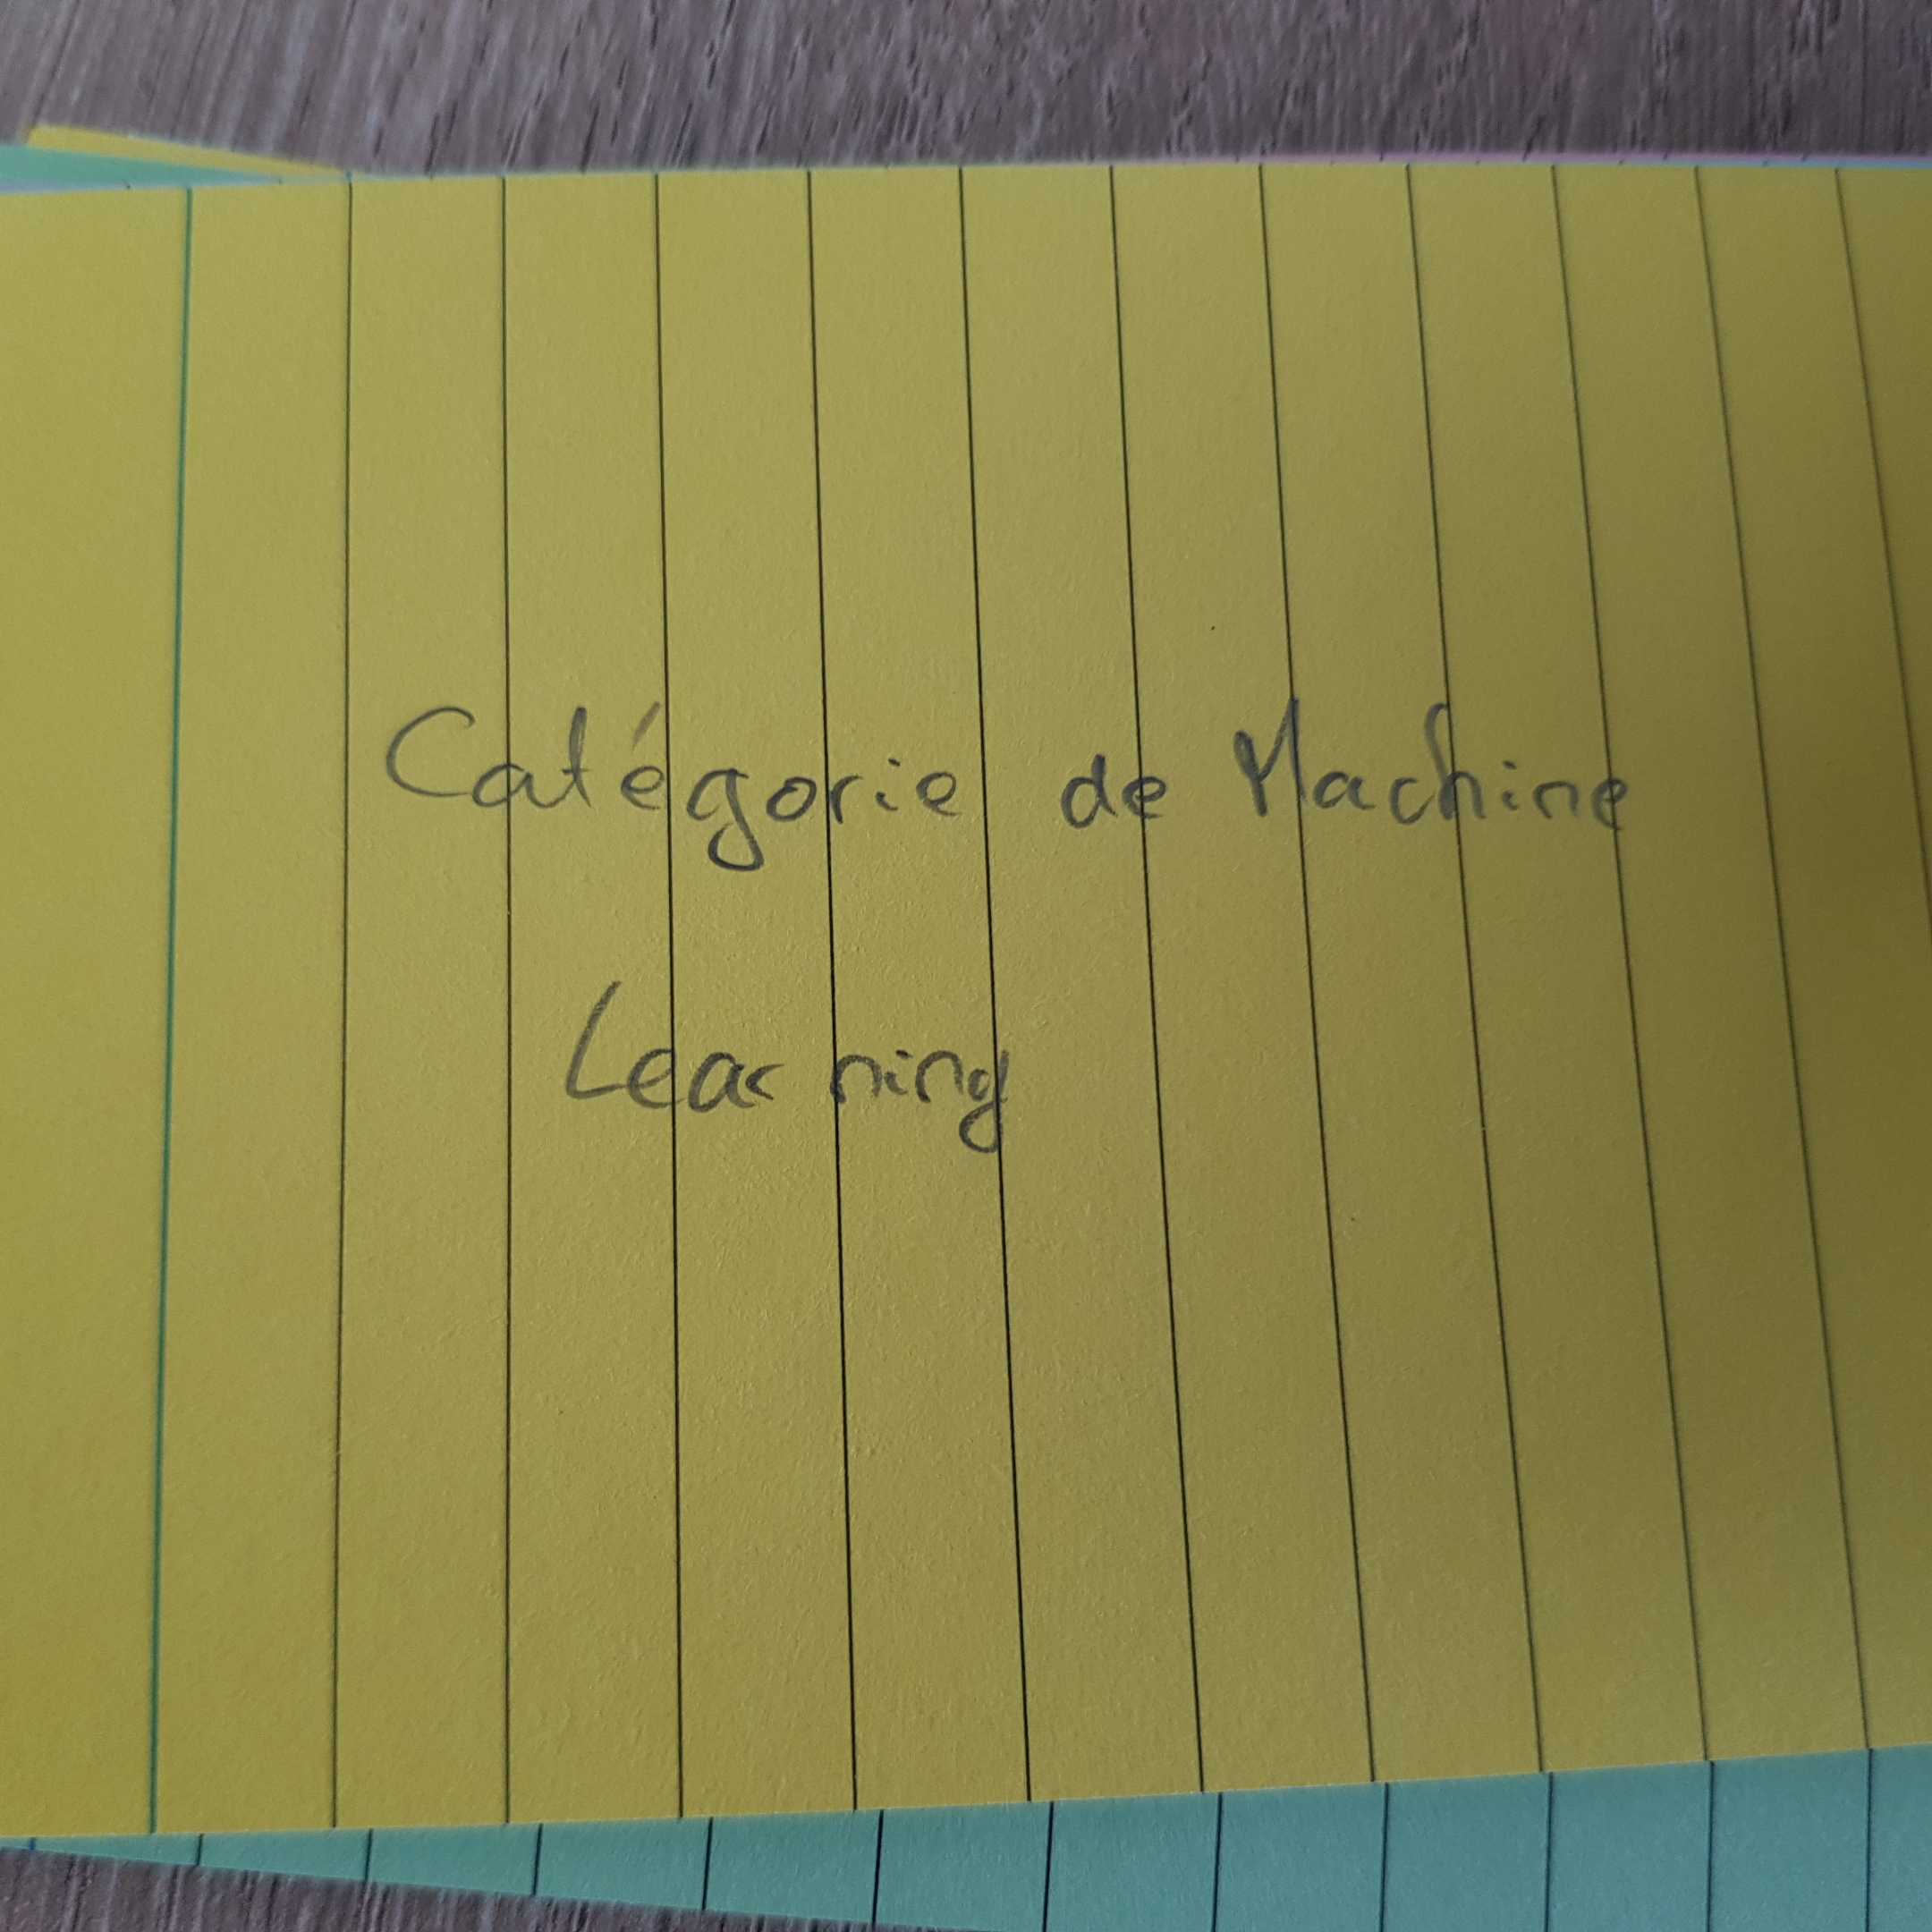 Catégorie de Machine
Learning